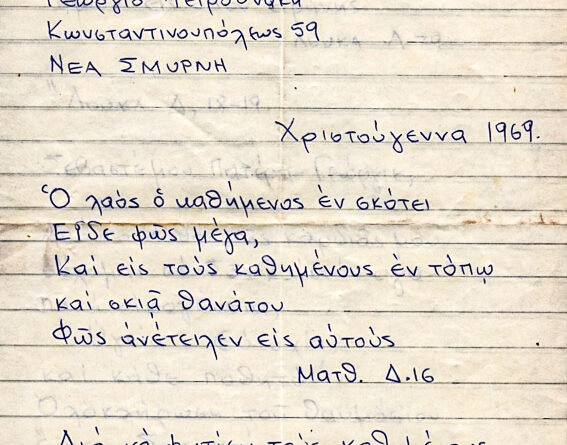 Κωνσταντινουπόλεως 59
ΝΕΑ ΣΜΥΡΝΗ
Χριστούγεννα 1969.
Ὁ λαὸς ὁ καθήμενος ἐν σκότει
Εἶδε φῶς μέγα,
Καὶ εἰς τοὺς καθημένους ἐν τόπῳ
καὶ σκιᾷ θανάτου
Φῶς ἀνέτειλεν εἰς αὐτούς
Ματθ. Δ.16